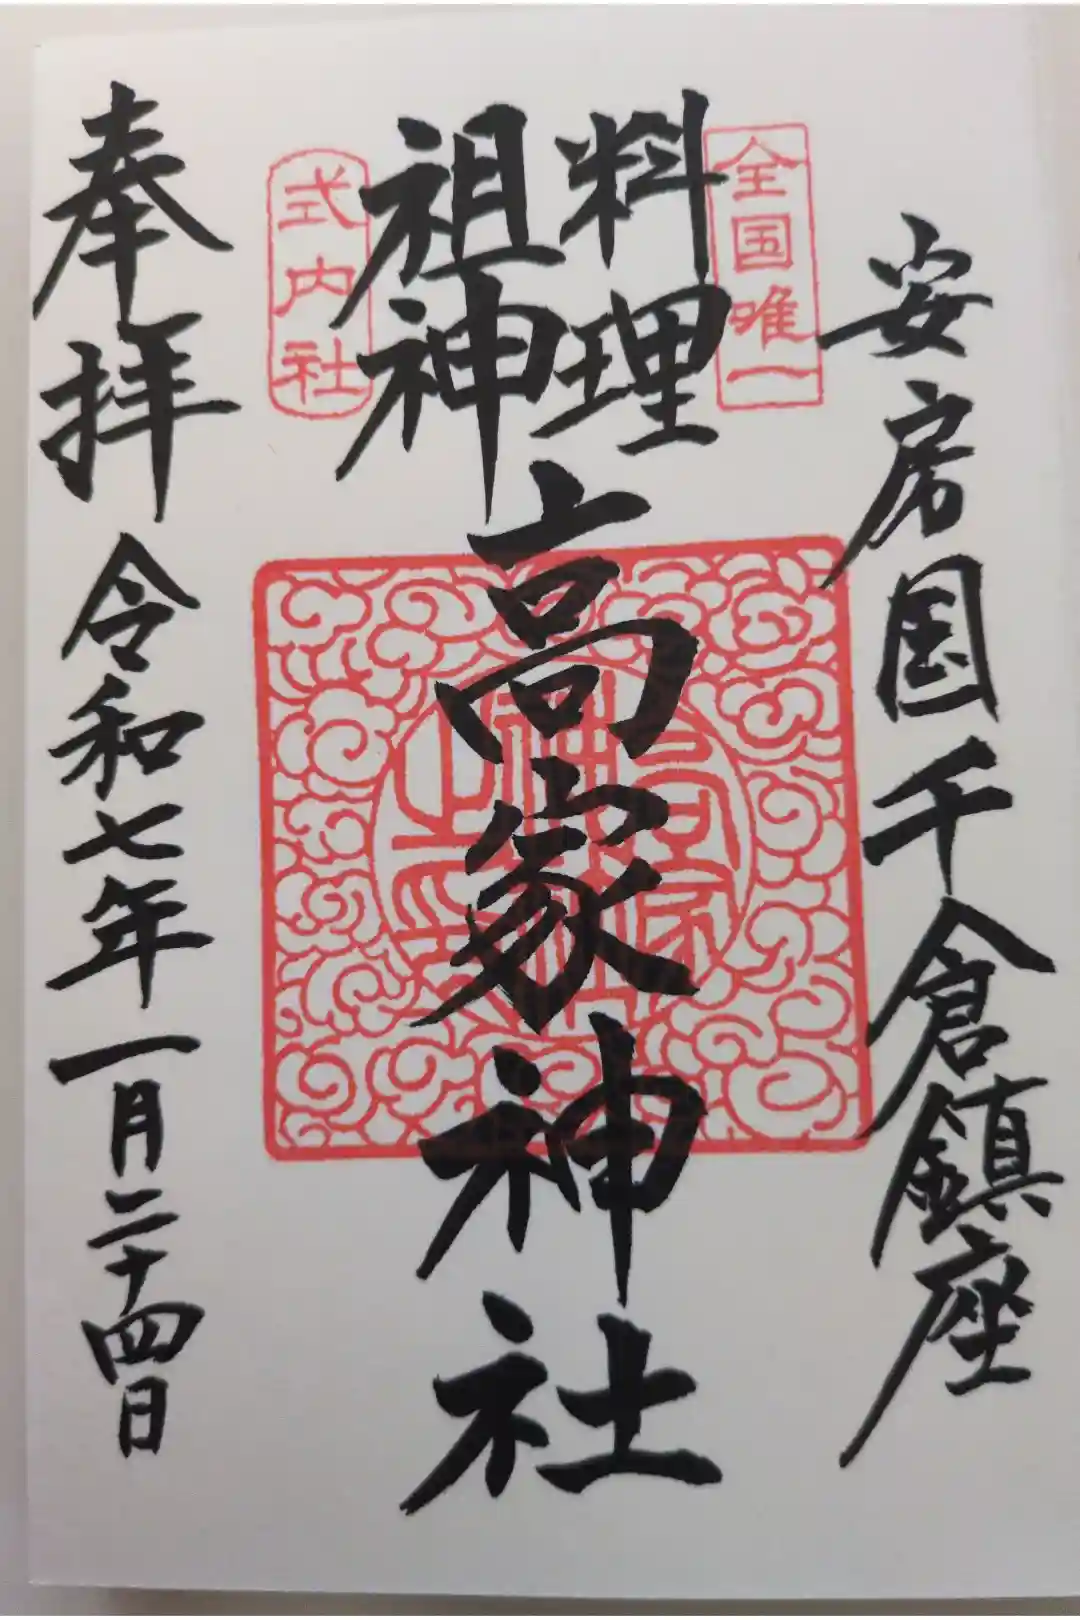 安房国千倉鎮座
全国唯一
料理
祖神
高家神社
式内社
奉拝
令和七年一月二十四日